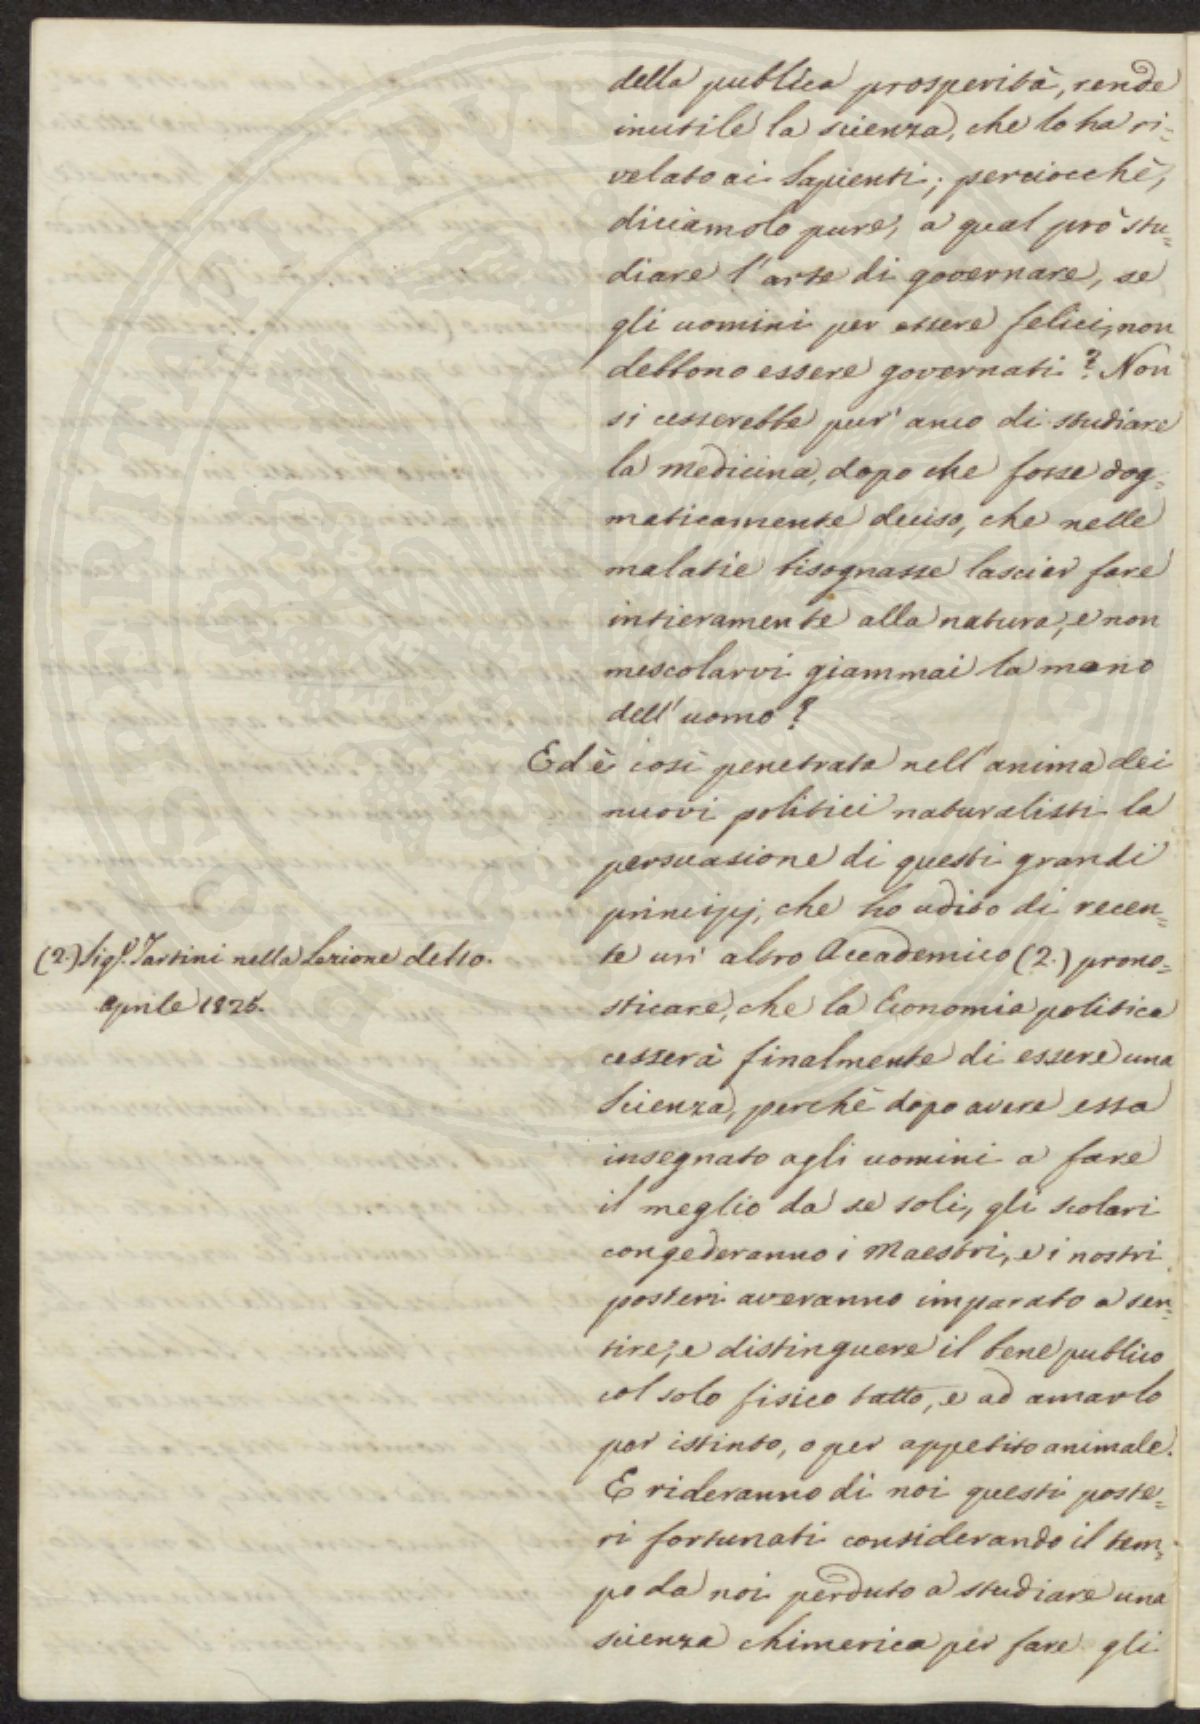 della publica prosperità, rende
inutile la scienza, che lo ha ri=
velato ai Sapienti; perciocchè,
diciamolo pure, a qual prò stu=
diare l'arte di governare, se
gli uomini per essere felici, non
debbono essere governati? Non
si cesserebbe pur' anco di studiare
la medicina, dopo che fosse dog=
maticamente deciso, che nelle
malatie bisognasse lascier fare
intieramente alla natura, e non
mescolarvi giammai la mano
dell'uomo?
Ed è così penetrata nell'anima dei
nuovi politici naturalisti la
persuasione di questi grandi
principj, che ho udito di recen=
te un' altro Accademico (2.) prono=
sticare, che la Economia politica
cesserà finalmente di essere una
Scienza, perchè dopo avere essa
insegnato agli uomini a fare
il meglio da se soli, gli scolari
congederanno i Maestri, e i nostri
posteri averanno imparato a sen=
tire, e distinguere il bene publico
col solo fisico tatto, e ad amarlo
per istinto, o per appetito animale.
E rideranno di noi questi poste=
ri fortunati considerando il tem=
po da noi perduto a studiare una
scienza chimerica per fare gli
(2.) Sigr. Tartini nella Lezione de' 10.
aprile 1825.
PVBLICAE